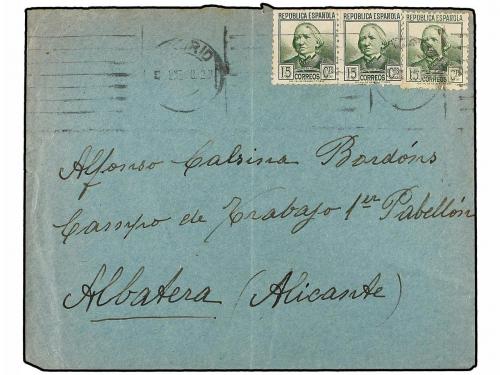 REPÚBLICA ESPAÑOLA REPÚBLICA ESPAÑOLA REPÚBLICA ESPAÑOLA
15 CTS 15 CTS 15 CTS
CORREOS CORREOS CORREOS
Alfonso Calsina Bordóns
Campo de Trabajo 1er Pabellón
Albatera (Alicante)